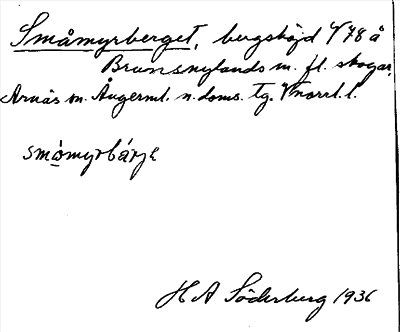 Småmyrberget, bergshöjd V78 å
Brunsnylands m. fl. skogar,
Arnäs sn. Ångerml. n. doms. tg. Vnorrl. l.
småmyrbárje
H A Söderberg 1936